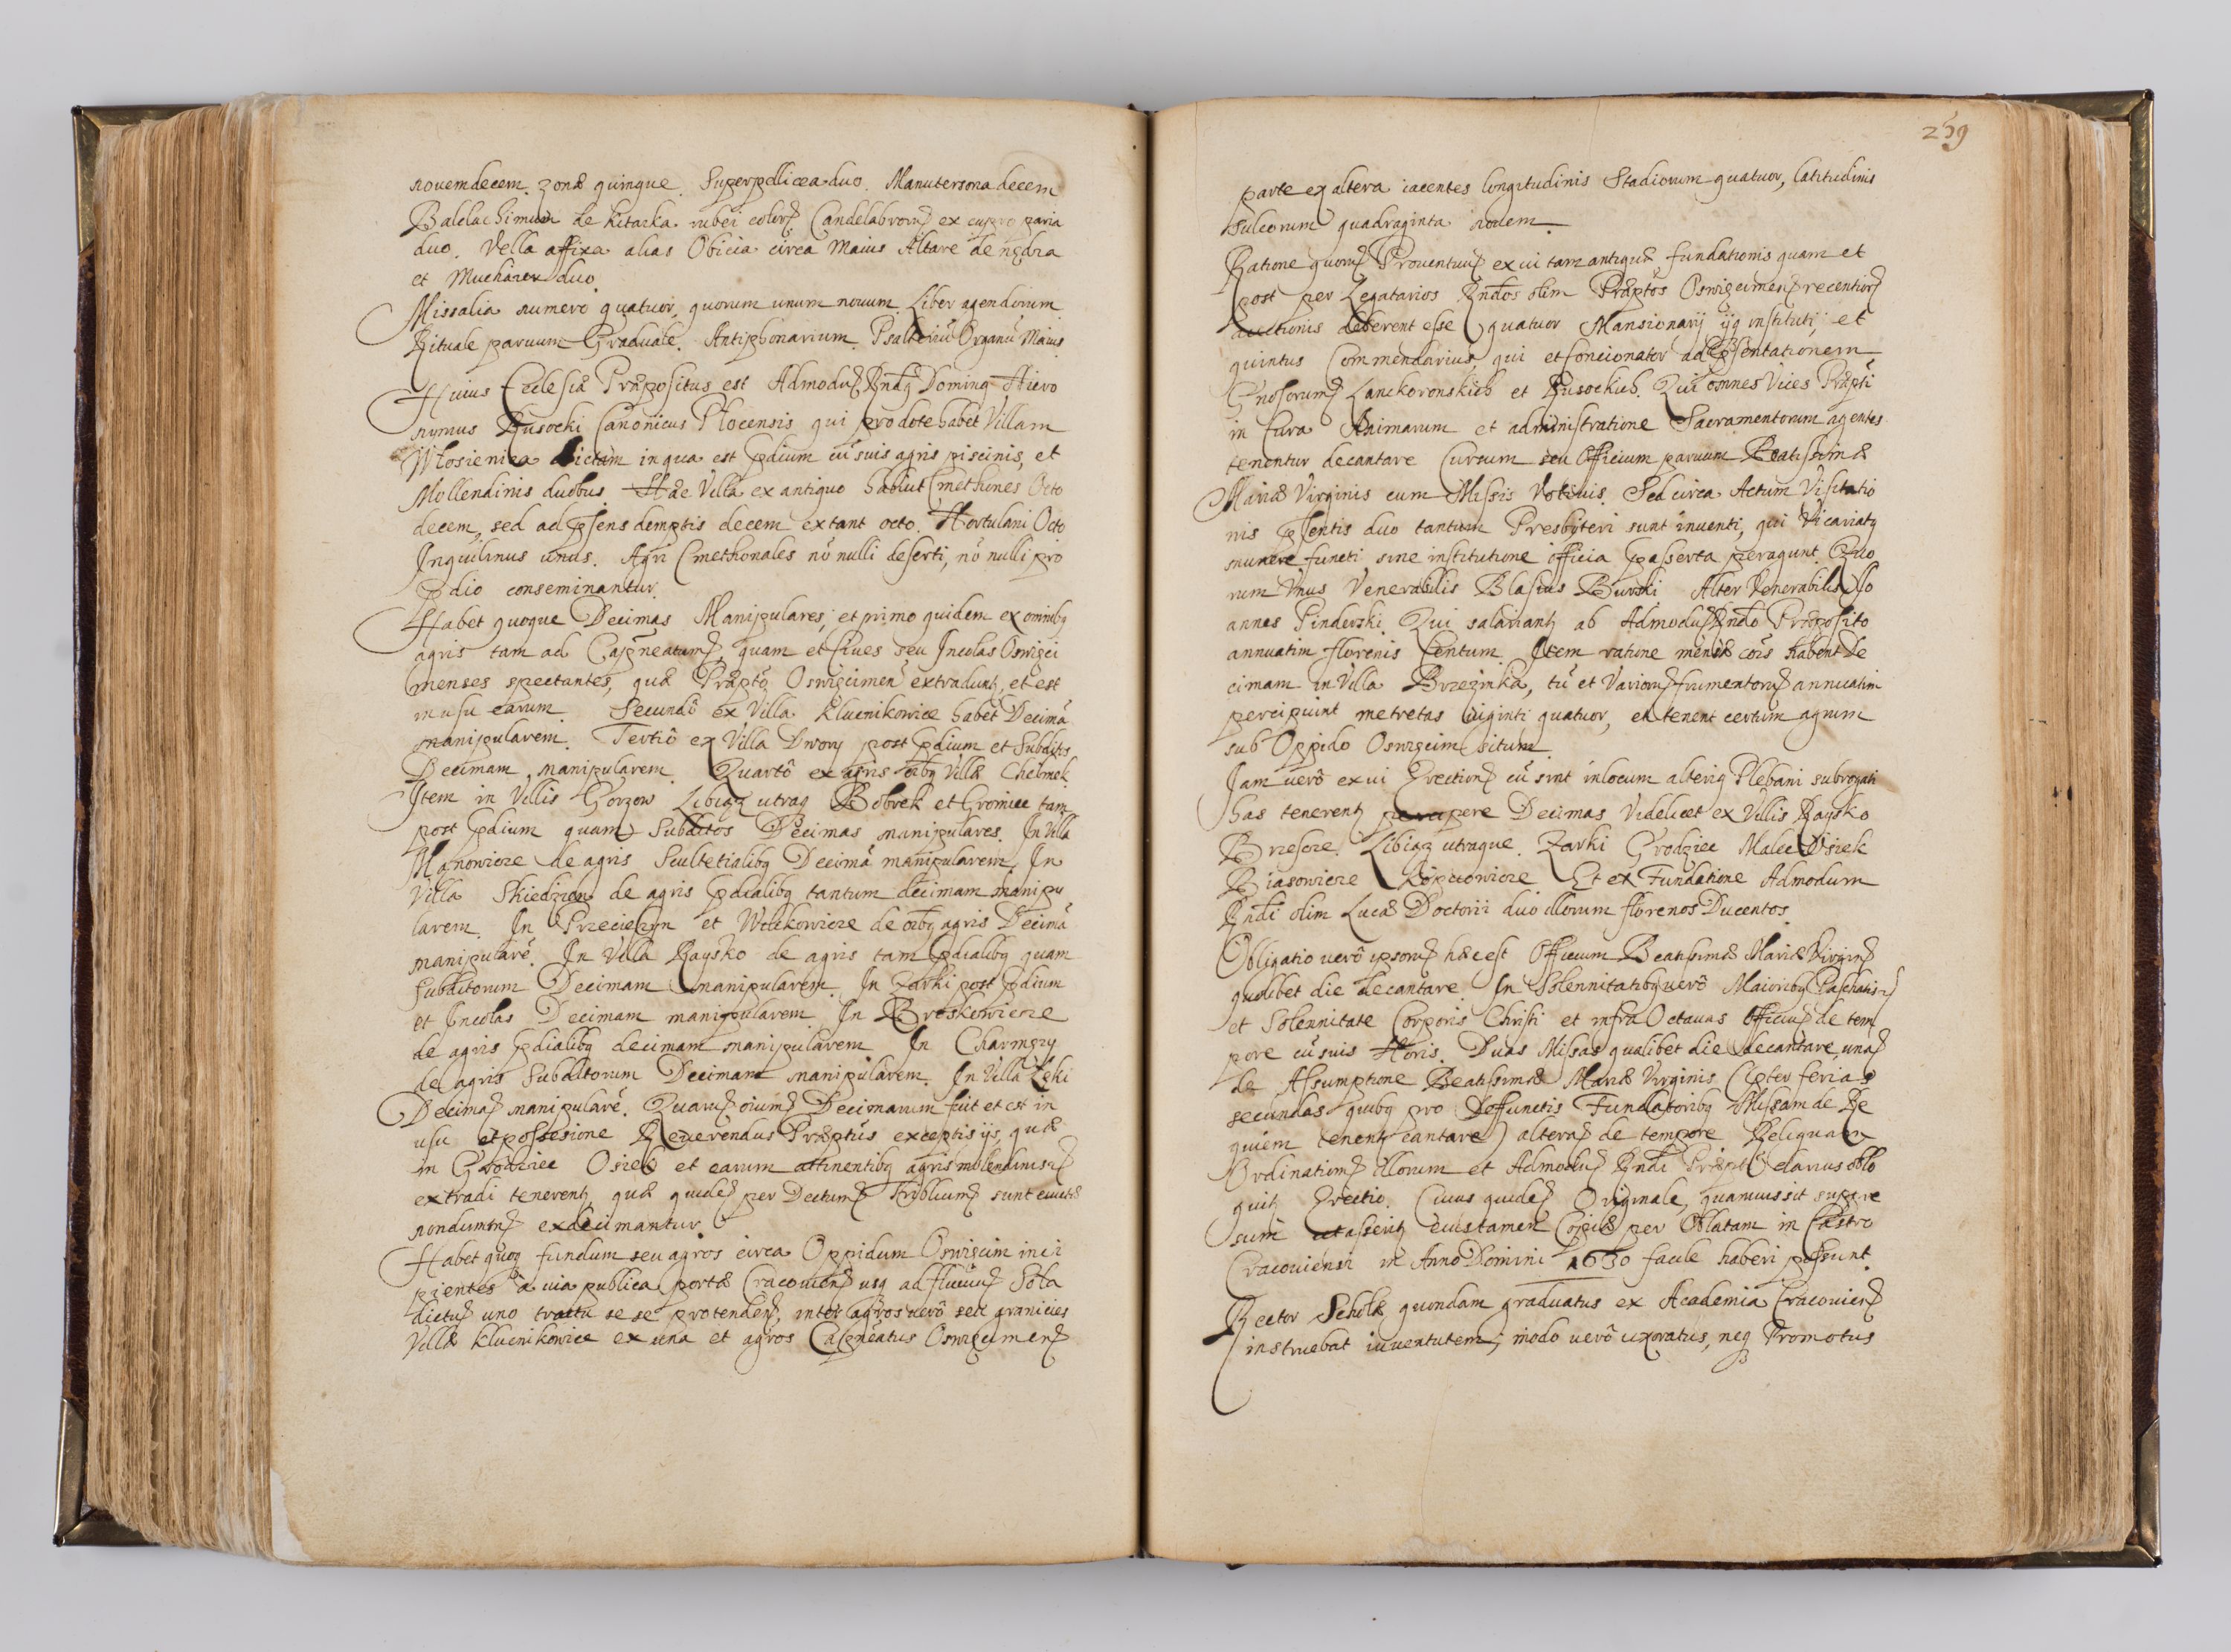 nouemdecem. Zonæ quinque. Superpellicea duo. Manutersoria decem
Baldachimum de kitaika rubei coloris Candelabrorum ex cupro paria
duo. Vella affixa alias Obicia circa Maius Altare de
et Muchaier duo.
Missalia numero quatuor, quorum unum nouum. Liber agendorum.
Rituale paruum Graduale. Antiphonarium. Psalteriũ Organũ Maius.
Huius Ecclesiæ Præpositus est Admodũ Rndus Dominus Hiero
nymus Rusocki Canonicus Plocensis qui pro dote habet Villam
Włosienica dictam in qua est prædium cũ suis agris piscinis, et
Mollendinis duobus. Hæc Villa ex antiquo habuit Cmethones Octo
decem, sed ad præsens demptis decem extant octo. Hortulani Octo
Inquilinus unus. Agri Cmethonales nõ nulli deserti, nõ nulli pro
prædio conseminantur.
Habet quoque Decimas Manipulares; et primo quidem ex omnibus
agris tam ad Capneatum, quam et Ciues seu Incolas Oswięci
menses spectantes, quæ Præpto Oswięcimen extraduntur, et est
in usu earum. Secundò ex Villa Kluenikowice habet Decimã
manipularem. Tertiò ex Villa Dwory post prædium et Subditos
Decimam manipularem. Quartò ex agris oibus Villæ Chełmek
Item in Villis Gorzow Libiąz utraq Bobrek et Gromiec tam
post prædium quam Subditos Decimas manipulares. In Villa
de agris Scultetialibus Decimã manipularem. In
Villa Skiedzien de agris prædialibus tantum decimam manipu
larem. In Przecieszyn et Wilczkowicze de oibus agris Decimã
manipularẽ. In Villa Raysko de agris tam prædialibus quam
Subditorum Decimam manipularem. In Zarki post prædium
et Incolas Decimam manipularem In Broskowicze
de agris prædialibus decimam manipularem In Charmęzy
de agris Subditorum Decimam manipularem. In Villa Łęki
Decimã manipularẽ. Quarũ oium Decimarum fuit et est in
usu et possesione Reuerendus Præptus exceptis ijs, quæ
in Grodziec Osiek et earum attinentibus agris molendinisq
extradi tenerentur, quæ quidẽ per Decretum Publicum sunt euictæ
nondum tn exdecimantur.
Habet quoq fundum seu agros circa Oppidum Oswięcim inci
pientes à uia publica portæ Cracouien usq ad fluuium Soła
dictũ uno tractu se se protenden, inter agros uerò seu granicies
Villæ Kluenikowice ex una et agros Capneatus Oswięcimen
259
parte ex altera iacentes longitudinis Stadiorum quatuor, latitudinis
sulcorum quadraginta nouem.
Ratione quorum Prouentuum ex ui tam antiquæ fundationis quam et
post per Legatarios Rndos olim Præptos Oswięcimen recentioris
auctionis deberent esse quatuor Mansionarij ijq instituti; et
quintus Commendarius, qui et Concionator ad præsentationem
Gnosorum Lanckoronskich et Rusockich. Qui omnes Vices Præpti
in Cura Animarum et administratione Sacramentorum agentes
tenentur decantare Cursum seu Officium paruum Beatissimæ
Mariæ Virginis cum Missis Votiuis. Sed circa Actum Visitatio
nis præsentis duo tantum Presbyteri sunt inuenti, qui Vicariatus
munere functi sine institutione officia præasserta peragunt. Quo
rum Unus Venerabilis Blasius Burski Alter Venerabilis Jo
annes Pinderski. Qui salariantur ab Admodũ Rndo Præposito
annuatim florenis Centum. Item ratione mensæ cois habent De
cimam in Villa Brzezinka, tũ et Variorum frumentorum annuatim
percipiunt metretas uiginti quatuor, et tenent certum agrum
sub Oppido Oswięcim situm.
Jam uerò ex ui Erectionis cũ sint in locum alterius Plebani subrogati
has tenerentur percipere Decimas Videlicet ex Villis Raysko
Brzescze. Libiąz utraque. Zarki Grodziec Malec Osiek
Biasowicze Kopciowicze Et ex Fundatione Admodum
Rndi olim Lucæ Doctorii duo illorum florenos Ducentos.
Obligatio uerò ipsorum hæc est Officium Beatissimæ Mariæ Virginis
qualibet die decantare. In Solennitatibus uerò Maioribus Paschatis
et Solennitate Corporis Christi et infra Octauas Officium de tem
pore cũ suis Horis. Duas Missas qualibet die decantare, unã
de Assumptione Beatissimæ Mariæ Virginis (præter ferias
secundas quibus pro Deffunctis Fundatoribus Missam de Re
quiem tenentur cantare) alterã de tempore Reliquam
Ordinationẽ illorum et Admodũ Rndi Præpti clarius oblo
quitur Erectio. Cuius quidẽ Originale, quamuis sit supre
sum eius tamen Copiæ per Oblatam in Castro
Cracouiensi in Anno Domini 1630 facile haberi possunt.
Rector Scholæ quondam graduatus ex Academia Cracouien
instruebat iuuentutem; modo uerò uxoratus, neq Promotus